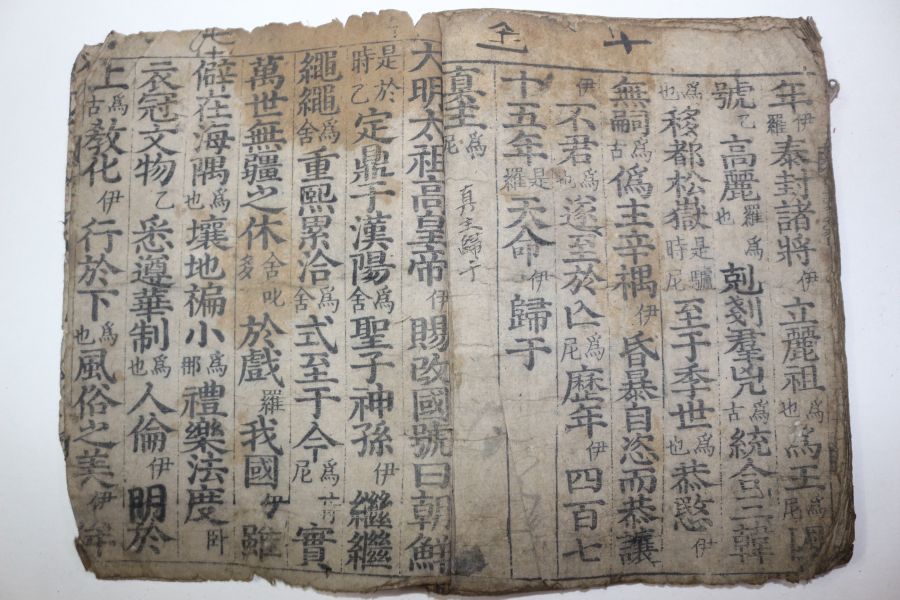 十
年伊羅泰封諸將伊立麗祖爲也爲王爲尼
號乙高麗羅爲也剋剗羣兇爲古統合三韓
爲也移都松嶽是驢時尼至于季世爲也恭愍伊
無嗣爲古僞主辛禑伊昏暴自恣而恭讓
伊不君爲也遂至於亾爲尼歷年伊四百七
十五年是羅天命伊歸于
真主爲尼
真主歸于
大明太祖高皇帝伊賜改國號曰朝鮮
是於時乙定鼎于漢陽爲舍聖子神孫伊繼繼
繩繩爲舍重熙累洽爲舍式至于今爲尼實
萬世無疆之休舍叱多於戲羅我國伊雖
僻在海隅爲也壤地褊小爲那禮樂法度卧
衣冠文物乙悉遵華制爲也人倫伊明於
上爲古敎化伊行於下爲也風俗之美伊